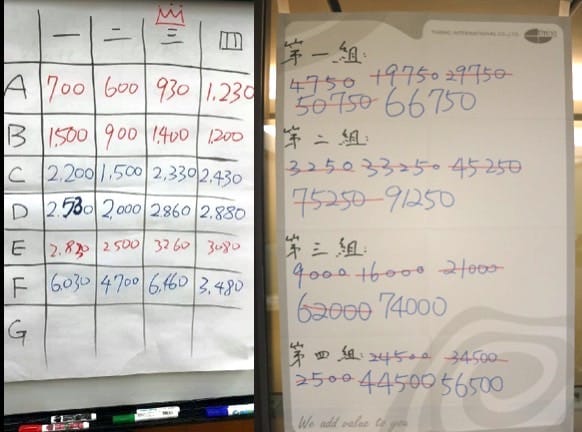 一 二 三 四
A 700 600 930 1.230
B 1500 900 1.400 1.200
C 2.200 1.500 2.330 2.430
D 2.530 2.000 2.860 2.880
E 2.830 2500 3260 3080
F 6.030 4700 6.460 3.480
G
THERMO INTERNATIONAL CO.,LTD.
第一組:
4750 19750 29750
50750 66750
第二組:
3250 33250 45250
75250 91250
第三組:
9000 16000 21000
62000 74000
第四組: 24500 34500
2500 44500 56500
We add value to you